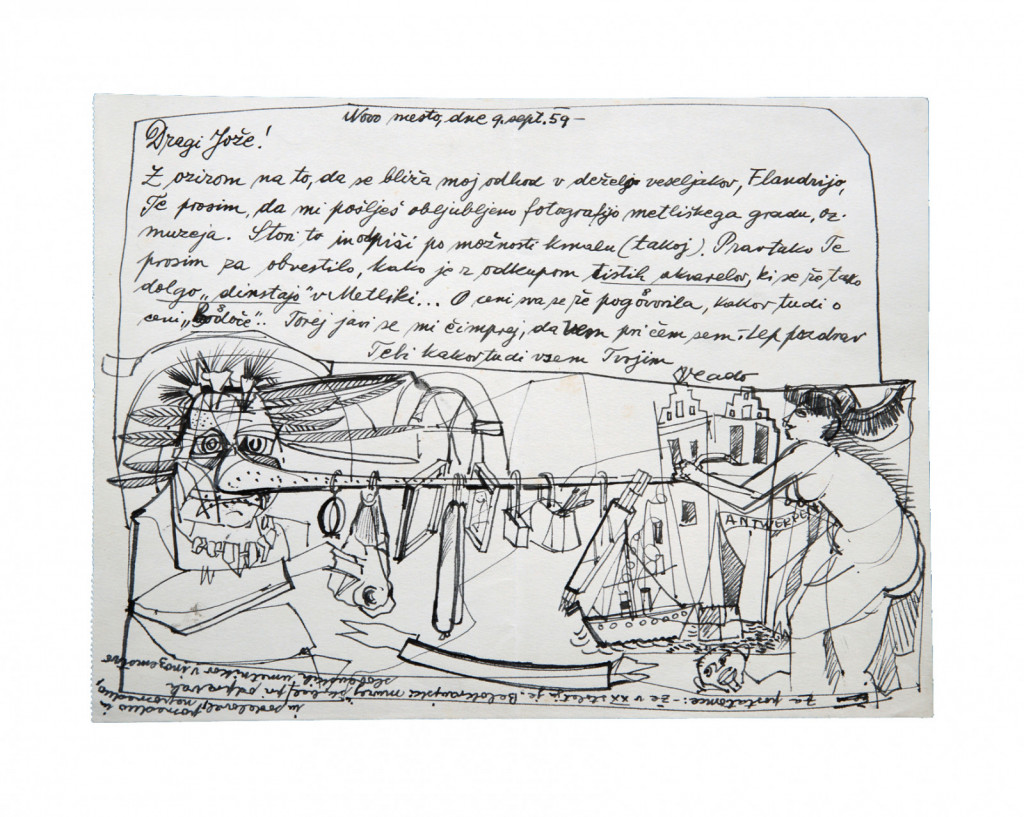 Novo mesto, dne 9. sept. 59 –
Dragi Jože!
Z ozirom na to, da se bliža moj odhod v deželo veseljakov, Flandrijo,
Te prosim, da mi pošlješ obljubljeno fotografijo metliškega gradu, oz.
muzeja. Stori to in odpiši po možnosti kmalu (takoj). Prav tako Te
prosim za obvestilo, kako je z odkupom tistih akvarelov, ki se že tako
dolgo „dinstajo" v Metliki... O ceni sva se že pogovorila, kakor tudi o
ceni „Bodoče".. Torej javi se mi čimprej, da vem pri čem sem i lep pozdrav
Tebi kakor tudi vsem Tvojim
Vlado
ANTWERPE
Za postalomce: – že v XX stoletju je Belokranjski muzej
umetnikov v inozemstvo